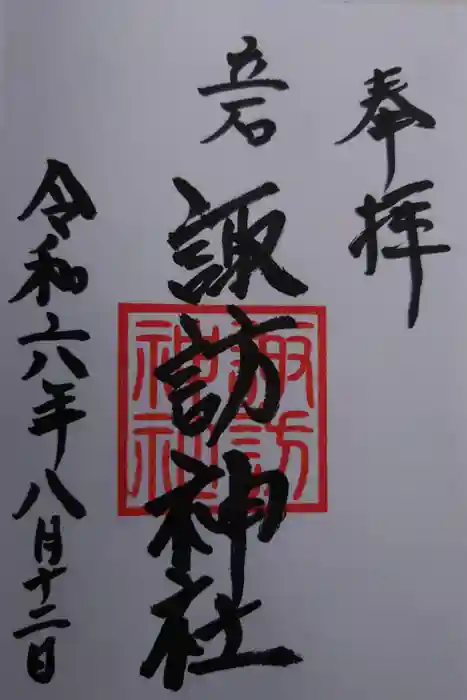 奉拝
立石
諏訪神社
諏訪神社
令和六年八月十二日